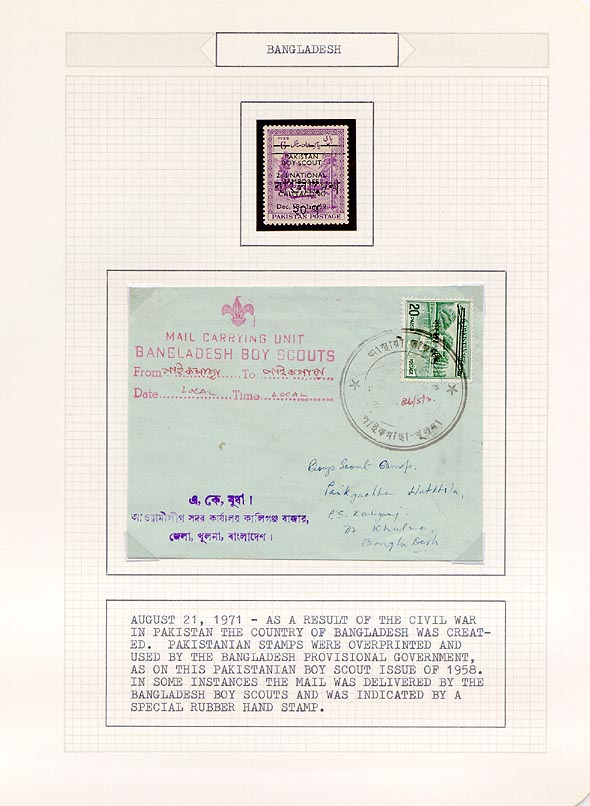 BANGLADESH
6
PAKISTAN
BOY SCOUT
2nd NATIONAL
JAMBOREE
CHITTAGONG
PAKISTAN POSTAGE
MAIL CARRYING UNIT
BANGLADESH BOY SCOUTS
From To
Date LOCAL Time LOCAL
20
Boys Scout Camp.
Paikgachha Hatkhola,
P.S. Kaliganj.
Dt Khulna,
Bangladesh
এ, কে, মুধা।
আওয়ামীলীগ সদর কার্যালয় কালিগঞ্জ বাজার,
জেলা, খুলনা, বাংলাদেশ।
AUGUST 21, 1971 - AS A RESULT OF THE CIVIL WAR
IN PAKISTAN THE COUNTRY OF BANGLADESH WAS CREAT-
ED. PAKISTANIAN STAMPS WERE OVERPRINTED AND
USED BY THE BANGLADESH PROVISIONAL GOVERNMENT,
AS ON THIS PAKISTANIAN BOY SCOUT ISSUE OF 1958.
IN SOME INSTANCES THE MAIL WAS DELIVERED BY THE
BANGLADESH BOY SCOUTS AND WAS INDICATED BY A
SPECIAL RUBBER HAND STAMP.